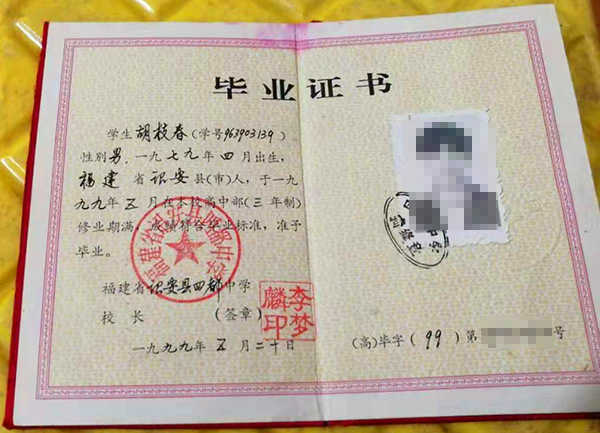 毕业证书
学生胡枝春(学号963903139),
性别男,一九七九年四月出生,
福建省诏安县(市)人,于一九
九九年五月在本校高中部(三年制)
修业期满,成绩符合毕业标准,准予
毕业。
福建省诏安县四都中学
校长 (签章)
李梦麟印
一九九九年五月二十日
福建省诏安县四都中学
(高)毕字(99)第 号